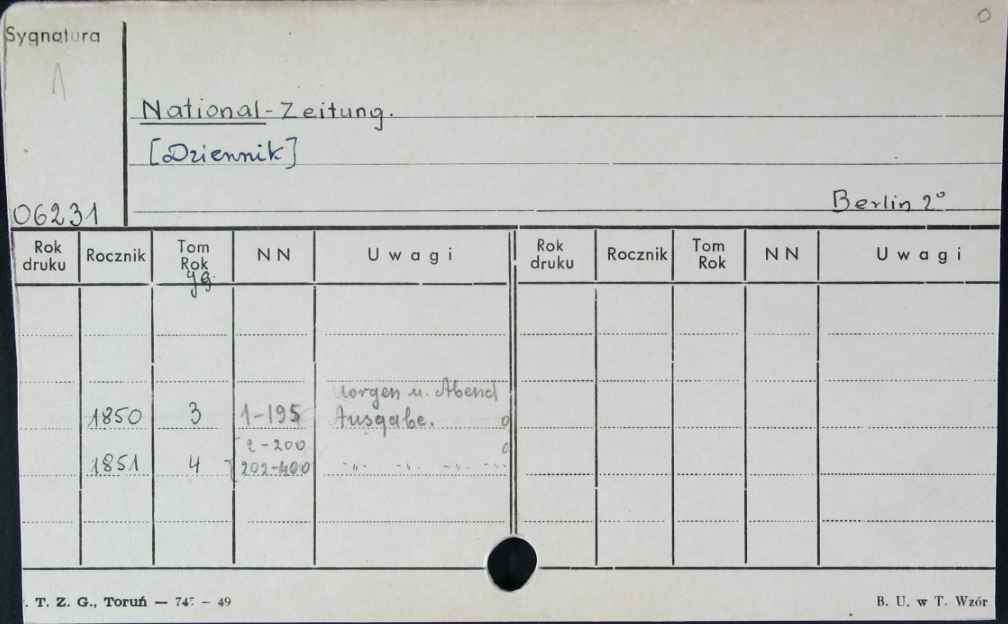 0
Sygnatura
National-Zeitung.
[Dziennik]
06231
Berlin 2°
Rok druku Rocznik Tom Rok NN Uwagi Rok druku Rocznik Tom Rok NN Uwagi
Jg.
orgen u. Abend
1850 3 1-195 Ausgabe. 0
2-200 0
1851 4 202-400 -"- -"- -"- -"-
. T. Z. G., Toruń — 74 - 49
B. U. w T. Wzór